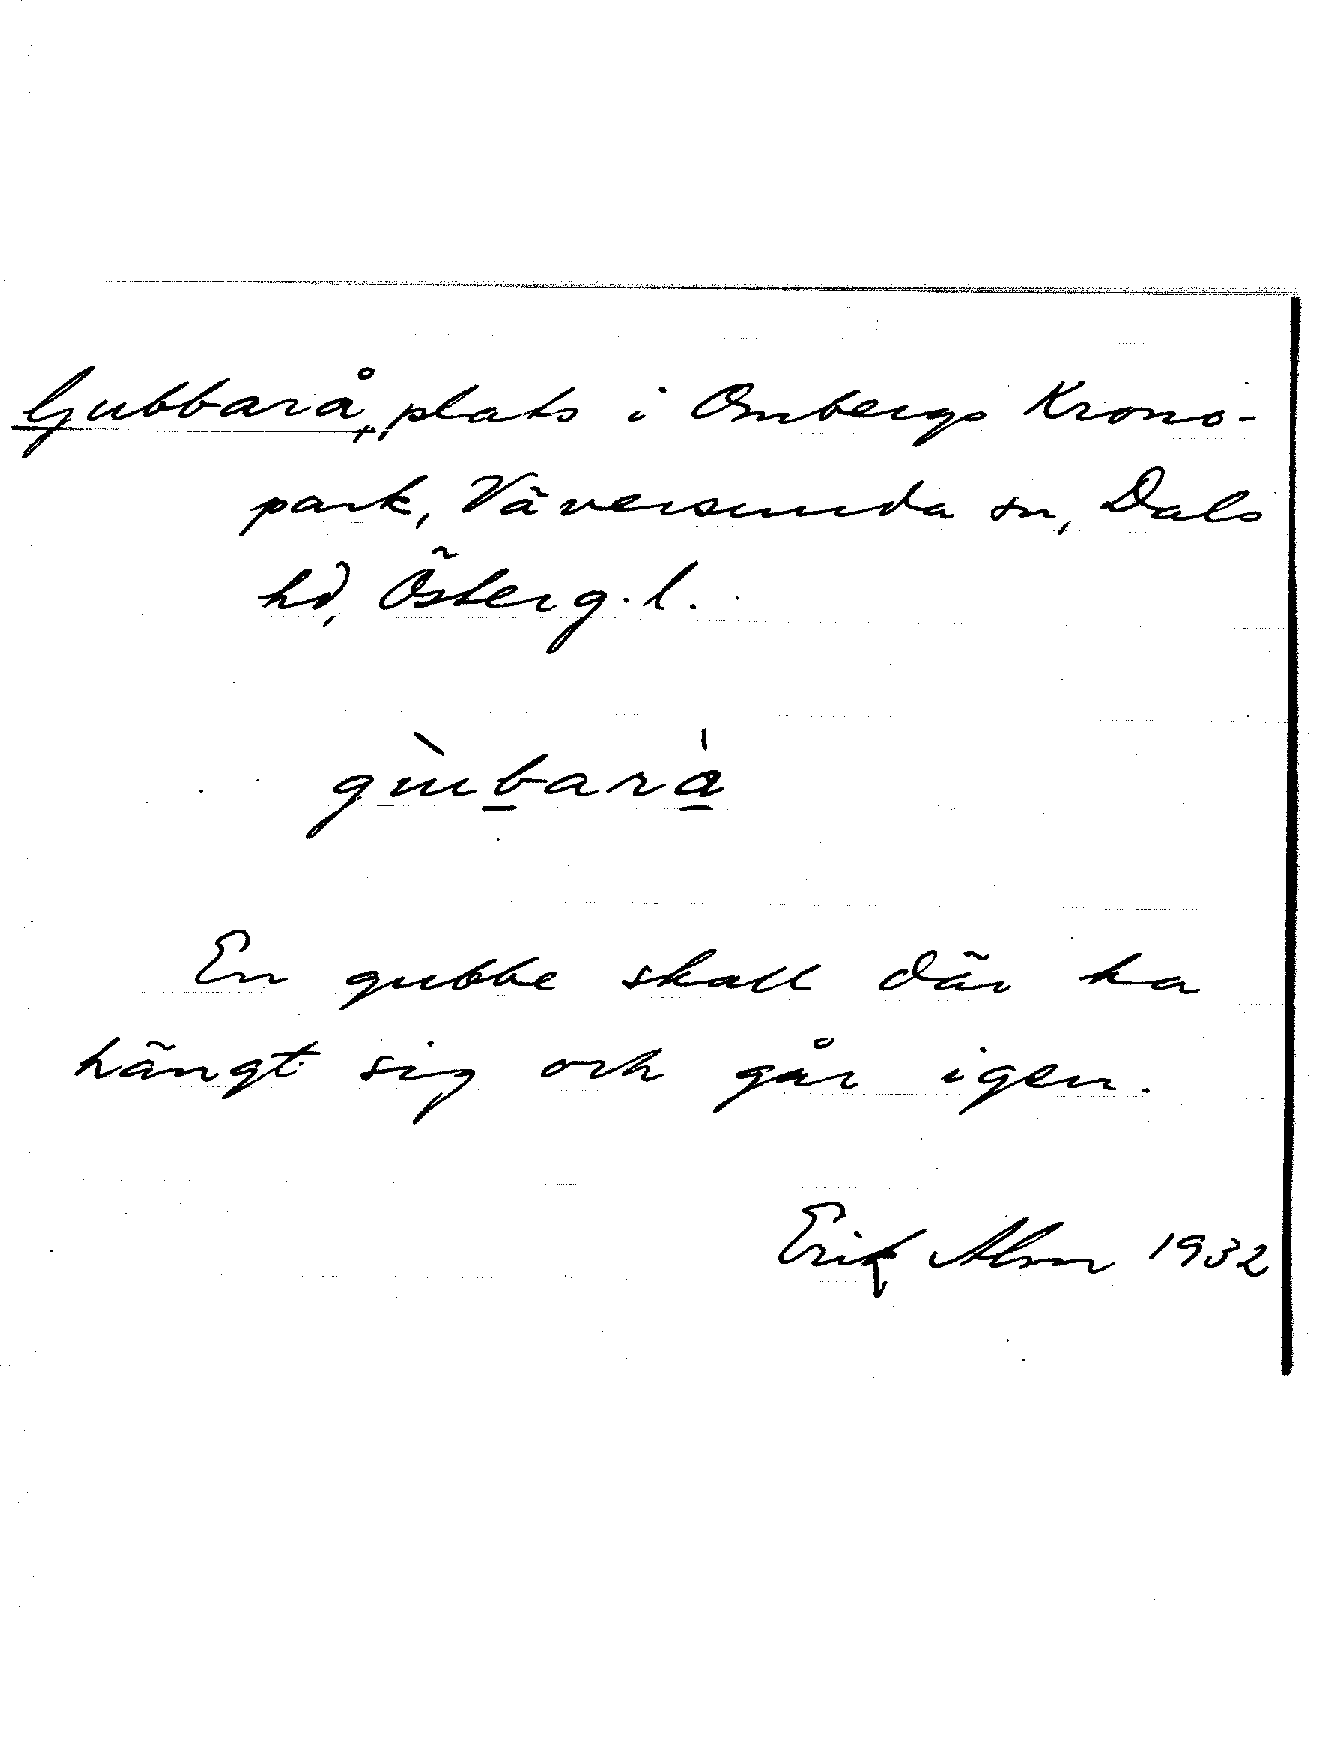 Gubbarå, plats i Ombergs Krono-
park, Väversunda sn, Dals
hd, Österg. l.
gùbarå̀
En gubbe skall där ha
hängt sig och går igen.
Erik Alm 1932